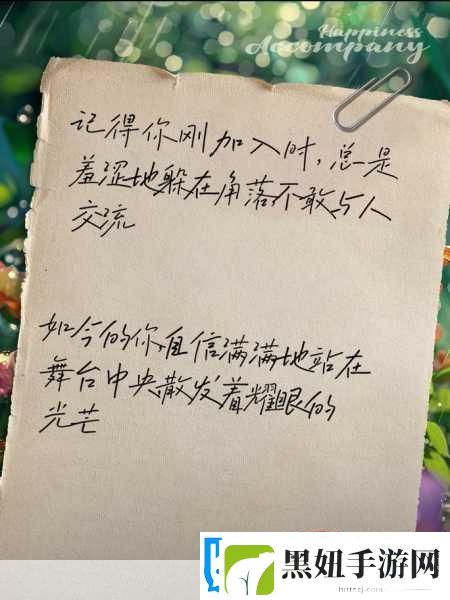 Happiness
Accompany
记得你刚加入时,总是
羞涩地躲在角落不敢与人
交流
如今的你自信满满地站在
舞台中央散发着耀眼的
光芒
黑妞手游网